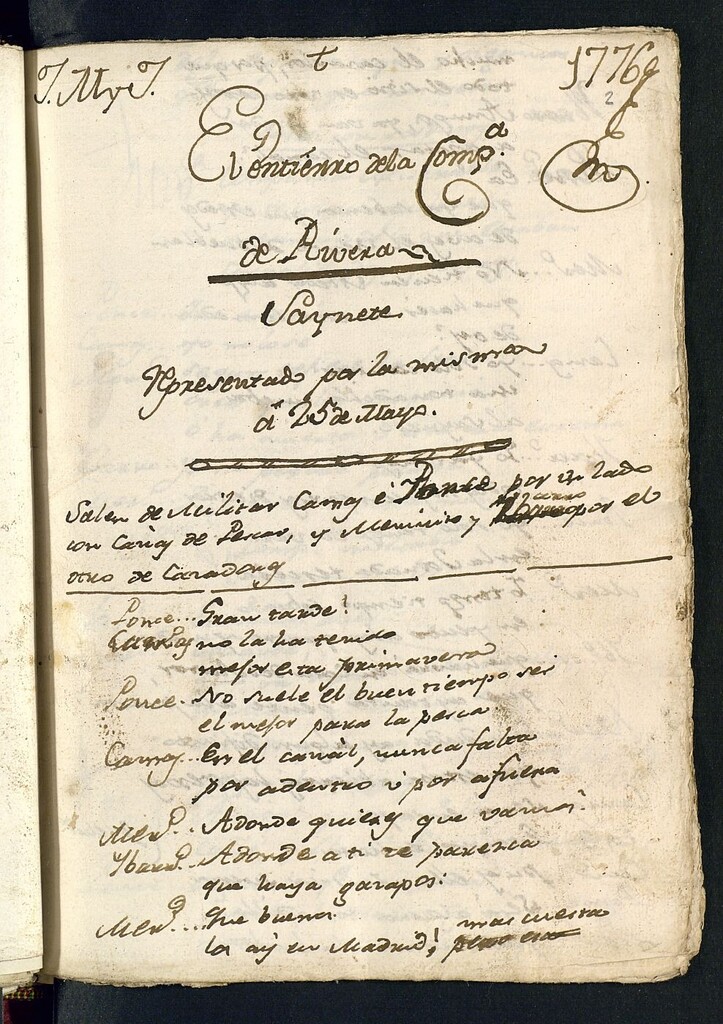 J. M. y J.
t
1776
2
El entierro de la Comp.a
de Rivera
Saynete
Representado por la misma
a 25 de Mayo.
Salen de Militar Camas é Ponce por un lado
con Cañas de Pescar, y Merinito y por el
otro de Cazadores
Ponce... Gran tarde!
no la ha tenido
mejor esta primavera
Ponce. No suele el buen tiempo ser
el mejor para la pesca
Camas.. En el canal, nunca falta
por adentro ú por afuera
Mer.o.. Adonde quieres que vamos?
Ybarr.o. Adonde a ti te parezca
que haya gazapos:
Mer.o.... Que buenos
los ay en Madrid! mas cuesta